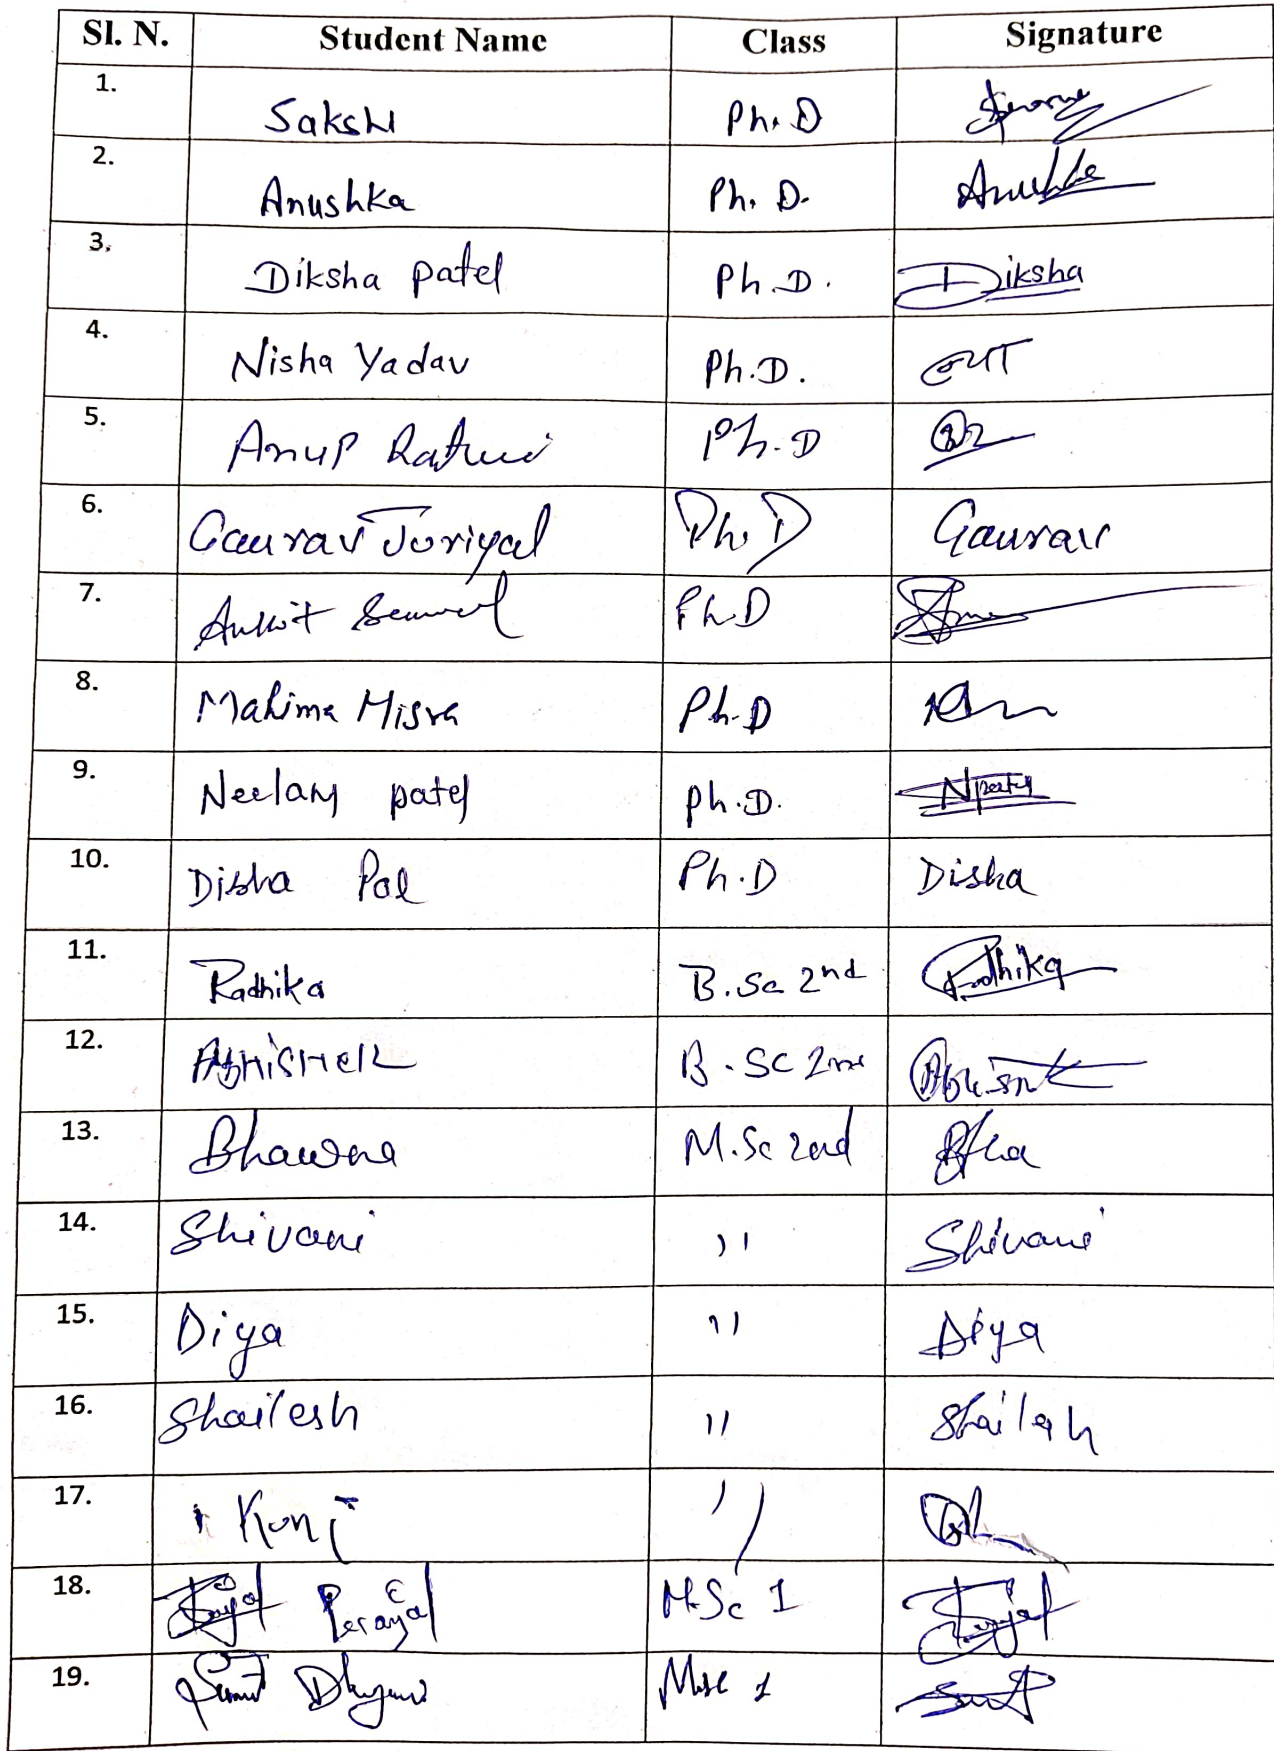 Sl. N. Student Name Class Signature
1. Sakshi Ph. D
2. Anushka Ph. D. Anushka
3. Diksha Patel Ph. D. Diksha
4. Nisha Yadav Ph.D.
5. Anup Raturi Ph. D
6. Gaurav Juriyal Ph. D Gaurav
7. Ankit Ph.D
8. Mahima Misra Ph.D
9. Neelam patel Ph.D. Npatel
10. Disha Pal Ph.D Disha
11. Radhika B.Sc 2nd Radhika
12. Abhishek B.SC 2nd
13. Bhawna M.Sc 2nd
14. Shivani " Shivani
15. Diya " Diya
16. Shailesh " Shailesh
17. Kunj "
18. M.Sc 1
19. Sumit Msc 1 Sumit